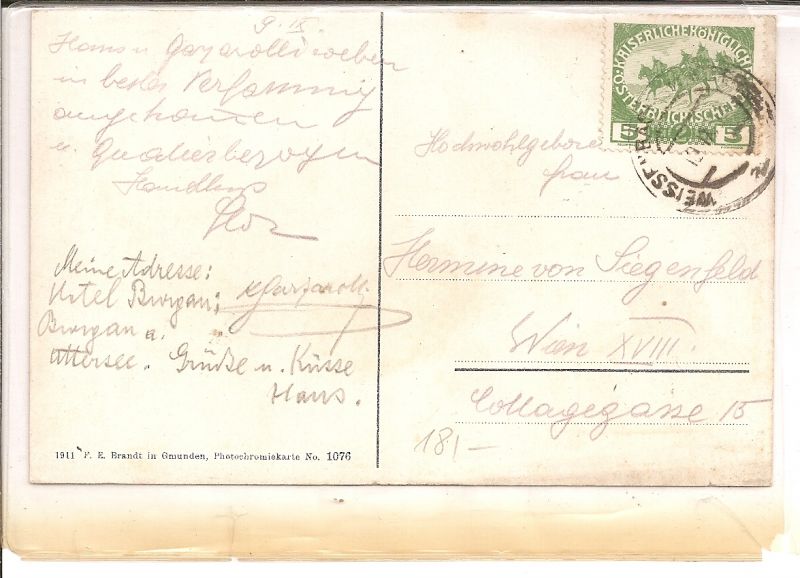 9. IX
Hans u. Gazarolli soeben
in bester Verfassung
angekommen
u. Quartier bezogen
Handkuss
Meine Adresse:
Hotel Burgau;
Burgau a.
Attersee. Grüße u. Küsse
Hans.
1911 F. E. Brandt in Gmunden, Photochromiekarte No. 1076
KAISERLICHE KÖNIGLICHE
ÖSTERREICHISCHE
5 5
WEISSENBAC
Hochwohlgeboren
Frau
Hermine von Siegenfeld
Wien XVIII.
Cottagegasse 15
181-